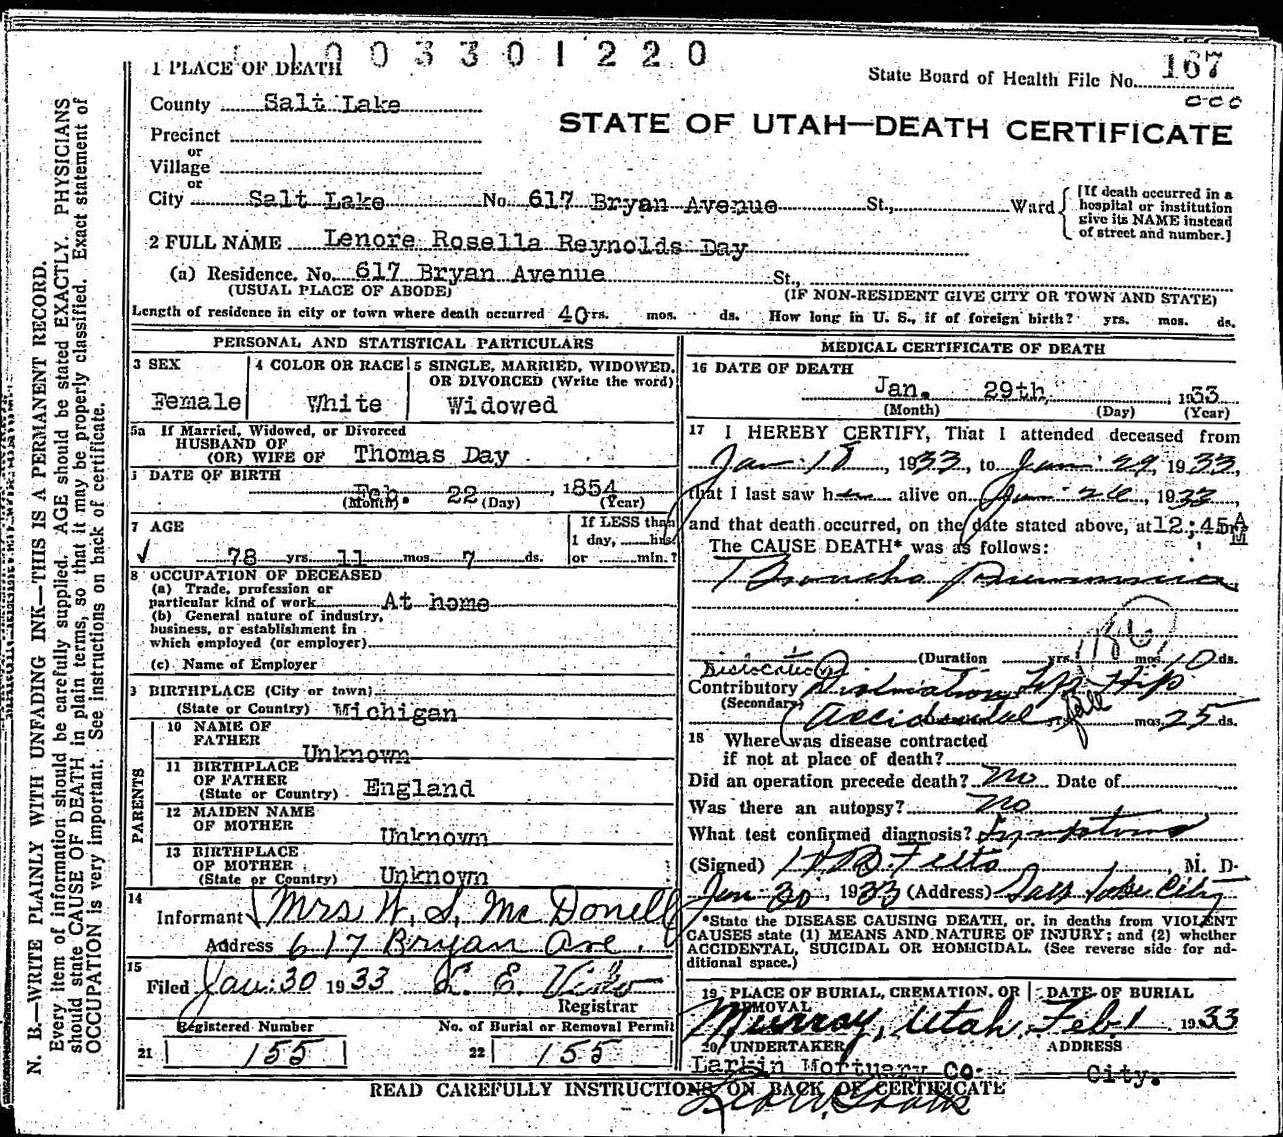 1003301220
1 PLACE OF DEATH
State Board of Health File No. 167
County Salt Lake
STATE OF UTAH—DEATH CERTIFICATE
Precinct
or
Village
or
City Salt Lake No. 617 Bryan Avenue St., Ward
[If death occurred in a
hospital or institution
give its NAME instead
of street and number.]
2 FULL NAME Lenore Rosella Reynolds Day
(a) Residence. No. 617 Bryan Avenue St.,
(USUAL PLACE OF ABODE) (IF NON-RESIDENT GIVE CITY OR TOWN AND STATE)
Length of residence in city or town where death occurred 40 yrs. mos. ds. How long in U. S., if of foreign birth? yrs. mos. ds.
PERSONAL AND STATISTICAL PARTICULARS
3 SEX
Female
4 COLOR OR RACE
White
5 SINGLE, MARRIED, WIDOWED,
OR DIVORCED (Write the word)
Widowed
5a If Married, Widowed, or Divorced
HUSBAND OF
(OR) WIFE OF Thomas Day
DATE OF BIRTH
Feb. 22, 1854
(Month) (Day) (Year)
7 AGE
78 yrs. 11 mos. 7 ds.
If LESS than
1 day, hrs.
or min.?
8 OCCUPATION OF DECEASED
(a) Trade, profession or
particular kind of work At home
(b) General nature of industry,
business, or establishment in
which employed (or employer)
(c) Name of Employer
9 BIRTHPLACE (City or town)
(State or Country) Michigan
PARENTS
10 NAME OF
FATHER
Unknown
11 BIRTHPLACE
OF FATHER
(State or Country) England
12 MAIDEN NAME
OF MOTHER
Unknown
13 BIRTHPLACE
OF MOTHER
(State or Country) Unknown
14
Informant Mrs W. S. Mc Donell
Address 617 Bryan Ave.
15
Filed Jan. 30 1933 L. E.
Registrar
Registered Number
21 155
No. of Burial or Removal Permit
22 155
MEDICAL CERTIFICATE OF DEATH
16 DATE OF DEATH
Jan. 29th, 1933
(Month) (Day) (Year)
17 I HEREBY CERTIFY, That I attended deceased from
Jan 18, 1933, to Jan 29, 1933,
that I last saw her alive on Jan 26, 1933
and that death occurred, on the date stated above, at 12:45 A M
The CAUSE DEATH* was as follows:
Broncho pneumonia
(Duration yrs. mos. 10 ds.
186
Dislocation
Contributory Dislocation Hip
(Secondary)
Accidental fall yrs. mos. 25 ds.
18 Where was disease contracted
if not at place of death?
Did an operation precede death? No Date of
Was there an autopsy? No
What test confirmed diagnosis? Symptoms
(Signed) H B Felts, M. D.
Jan 30, 1933 (Address) Salt Lake City
*State the DISEASE CAUSING DEATH, or, in deaths from VIOLENT
CAUSES state (1) MEANS AND NATURE OF INJURY; and (2) whether
ACCIDENTAL, SUICIDAL OR HOMICIDAL. (See reverse side for ad-
ditional space.)
19 PLACE OF BURIAL, CREMATION, OR
REMOVAL
Murray, Utah
DATE OF BURIAL
Feb. 1 1933
20 UNDERTAKER
Larkin Mortuary Co.
ADDRESS
City.
READ CAREFULLY INSTRUCTIONS ON BACK OF CERTIFICATE
N. B.—WRITE PLAINLY WITH UNFADING INK—THIS IS A PERMANENT RECORD.
Every item of information should be carefully supplied. AGE should be stated EXACTLY. PHYSICIANS
should state CAUSE OF DEATH in plain terms, so that it may be properly classified. Exact statement of
OCCUPATION is very important. See instructions on back of certificate.